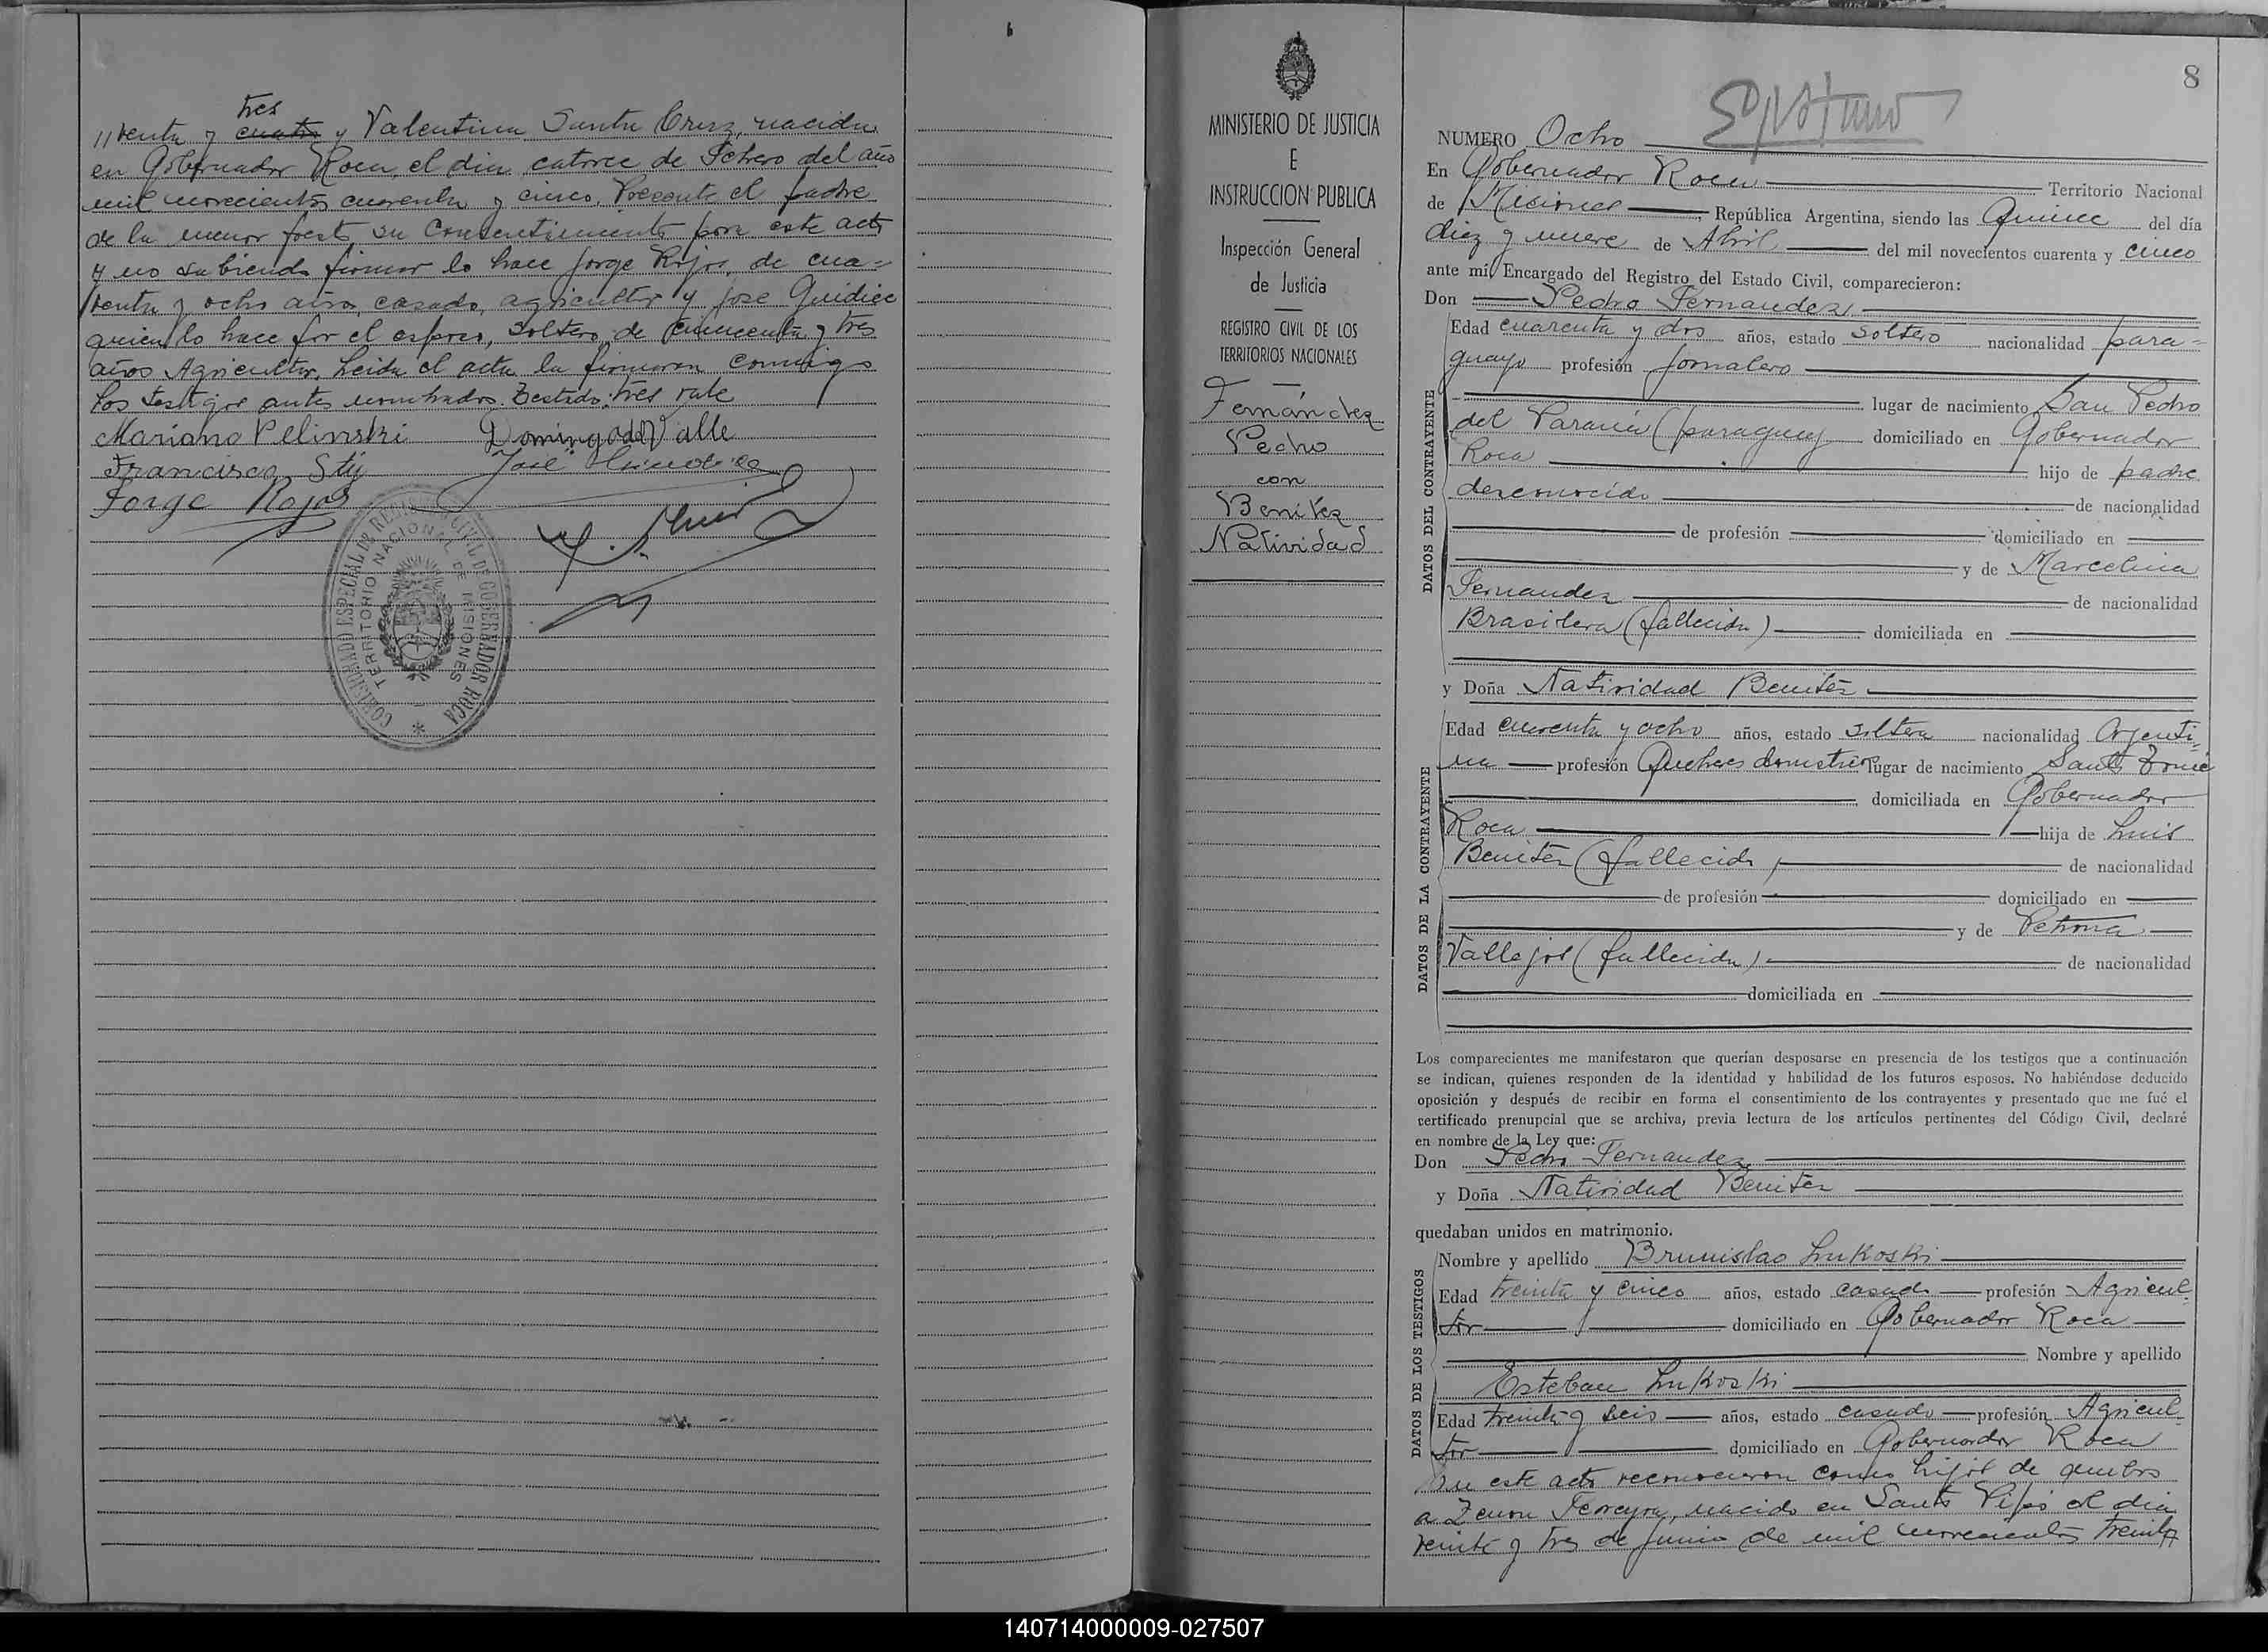 tres
//renta y cuatro y Valentina Santa Cruz, nacida
en Gobernador Roca, el dia catorce de Febrero del año
mil novecientos cuarenta y cinco. Presente el padre
de la menor presta su consentimiento para este acto
y no sabiendo firmar lo hace Jorge Rojos, de cua=
renta y ocho años, casado, agricultor y Jose Guidice
quien lo hace por el esposo, soltero, de cincuenta y tres
años Agricultor. Leida el acta la firmaron conmigo
los testigos antes nombrados. Testado: tres vale
Mariano Pelinski Domingo del Valle
Francisco Sty José
Jorge Rojos
COMISARIADO ESPECIAL DEL REGISTRO CIVIL DE GOBERNADOR ROCA
TERRITORIO NACIONAL DE MISIONES
MINISTERIO DE JUSTICIA
E
INSTRUCCION PUBLICA
Inspección General
de Justicia
REGISTRO CIVIL DE LOS
TERRITORIOS NACIONALES
Fernández
Pedro
con
Benitez
Natividad
8
NUMERO Ocho
En Gobernador Roca Territorio Nacional
de Misiones, República Argentina, siendo las Quince del día
diez y nueve de Abril del mil novecientos cuarenta y cinco
ante mi Encargado del Registro del Estado Civil, comparecieron:
Don Pedro Fernandez
DATOS DEL CONTRAYENTE
Edad cuarenta y dos años, estado soltero nacionalidad para=
guayo profesión jornalero
lugar de nacimiento San Pedro
del Paraná (paraguay) domiciliado en Gobernador
Roca hijo de padre
desconocido de nacionalidad
de profesión domiciliado en
y de Marcelina
Fernandez de nacionalidad
Brasilera (fallecida) domiciliada en
y Doña Natividad Benitez
DATOS DE LA CONTRAYENTE
Edad cuarenta y ocho años, estado soltera nacionalidad Argenti=
na profesión Quehaceres domestico lugar de nacimiento Santo Tomé
domiciliada en Gobernador
Roca hija de Luis
Benitez (fallecido) de nacionalidad
de profesión domiciliado en
y de Petrona
Vallejos (fallecida) de nacionalidad
domiciliada en
Los comparecientes me manifestaron que querían desposarse en presencia de los testigos que a continuación
se indican, quienes responden de la identidad y habilidad de los futuros esposos. No habiéndose deducido
oposición y después de recibir en forma el consentimiento de los contrayentes y presentado que me fué el
certificado prenupcial que se archiva, previa lectura de los artículos pertinentes del Código Civil, declaré
en nombre de la Ley que:
Don Pedro Fernandez
y Doña Natividad Benitez
quedaban unidos en matrimonio.
DATOS DE LOS TESTIGOS
Nombre y apellido Brunislao Lukoski
Edad treinta y cinco años, estado casado profesión Agricul
tor domiciliado en Gobernador Roca
Nombre y apellido
Esteban Lukoski
Edad treinta y seis años, estado casado profesión Agricul
tor domiciliado en Gobernador Roca
En este acto reconocieron como hijos de ambos
a Zenon Ferreyra, nacido en Santo Pipó el dia
veinte y tres de Junio de mil novecientos treinta
140714000009-027507